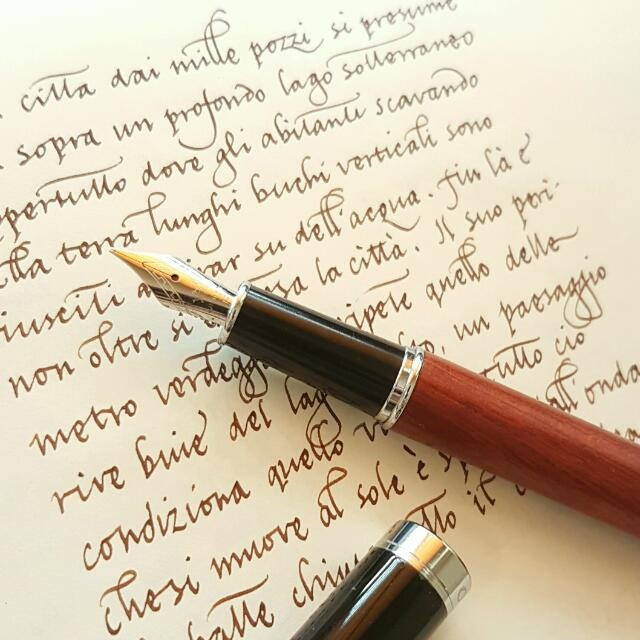 città dai mille pozzi si presume
sopra un profondo lago sotterraneo
pertutto dove gli abitanti scavando
lla terra lunghi buchi verticali sono
iusciti a rar su dell'acqua. Fin là è
non oltre si esa la città. Il suo peri-
metro verdeggi ipete quello delle
rive buie del lag o, un paesaggio
condiziona quello vi tutto ciò
che si muove al sole è sp all'onda
batte chiu tto il